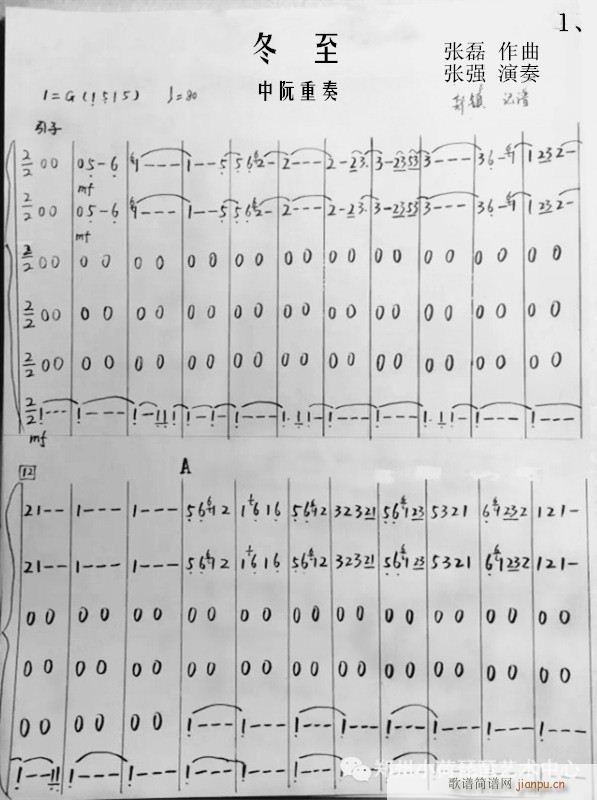 1、
冬 至
张磊 作曲
张强 演奏
中阮重奏
1=G(1515) ♩=80
郑镇 记谱
引子
2/2 00 | 05-6 | 1--- | 1--5 | 562- | 2--- | 2-23. | 3-2353 | 3--- | 36-1 | 1232-
mf
2/2 00 | 05-6 | 1--- | 1--5 | 562- | 2--- | 2-23. | 3-2353 | 3--- | 36-1 | 1232-
mf
2/2 00 | 0 0 | 0 0 | 0 0 | 0 0 | 0 0 | 0 0 | 0 0 | 0 0 | 0 0 | 0 0
2/2 00 | 0 0 | 0 0 | 0 0 | 0 0 | 0 0 | 0 0 | 0 0 | 0 0 | 0 0 | 0 0
2/2 00 | 0 0 | 0 0 | 0 0 | 0 0 | 0 0 | 0 0 | 0 0 | 0 0 | 0 0 | 0 0
2/2 1--- | 1--- | 1-111 | 1-1- | 1--- | 1·11- | 1--- | 1--- | 1·11- | 1--- | 1---
mf
12
A
21-- | 1--- | 1--- | 5612 | 1616 | 5612 | 32321 | 56123 | 5321 | 61232 | 121-
21-- | 1--- | 1--- | 5612 | 1616 | 5612 | 32321 | 56123 | 5321 | 61232 | 121-
0 0 | 0 0 | 0 0 | 0 0 | 0 0 | 0 0 | 0 0 | 0 0 | 0 0 | 0 0 | 0 0
0 0 | 0 0 | 0 0 | 0 0 | 0 0 | 0 0 | 0 0 | 0 0 | 0 0 | 0 0 | 0 0
0 0 | 0 0 | 0 0 | 1--- | 1--- | 1--- | 1--- | 1--- | 1--- | 1--- | 1---
1--11 | 1--- | 1--- | 1--- | 1--- | 1--- | 1---
歌谱简谱网 jianpu.cn